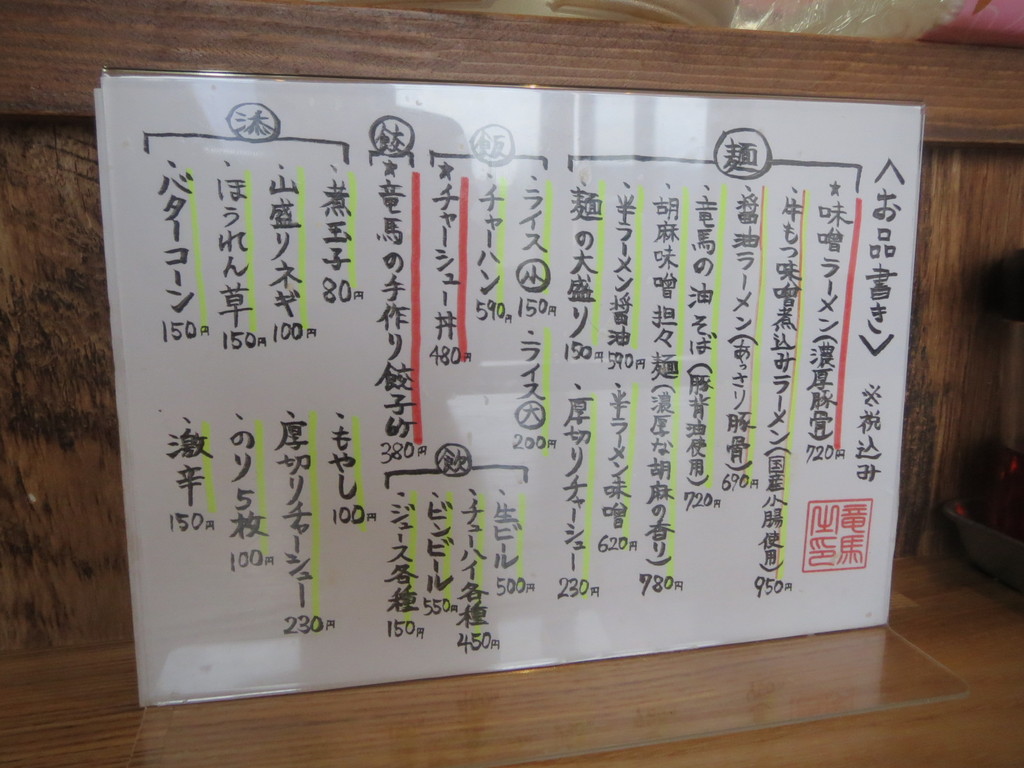 〈お品書き〉 ※税込み
竜馬之印
麺
★味噌ラーメン(濃厚豚骨) 720円
・牛もつ味噌煮込みラーメン(国産小腸使用) 950円
・醤油ラーメン(あっさり豚骨) 690円
・竜馬の油そば(豚背油使用) 720円
・胡麻味噌担々麺(濃厚な胡麻の香り) 780円
・半ラーメン醤油 590円
・半ラーメン味噌 620円
・麺の大盛り 150円
・厚切りチャーシュー 230円
飯
・ライス小 150円
・ライス大 200円
・チャーハン 590円
★チャーシュー丼 480円
餃
★竜馬の手作り餃子 380円
飲
・生ビール 500円
・チューハイ各種 450円
・ビンビール 550円
・ジュース各種 150円
添
・煮玉子 80円
・もやし 100円
・山盛りネギ 100円
・厚切りチャーシュー 230円
・ほうれん草 150円
・のり5枚 100円
・バターコーン 150円
・激辛 150円